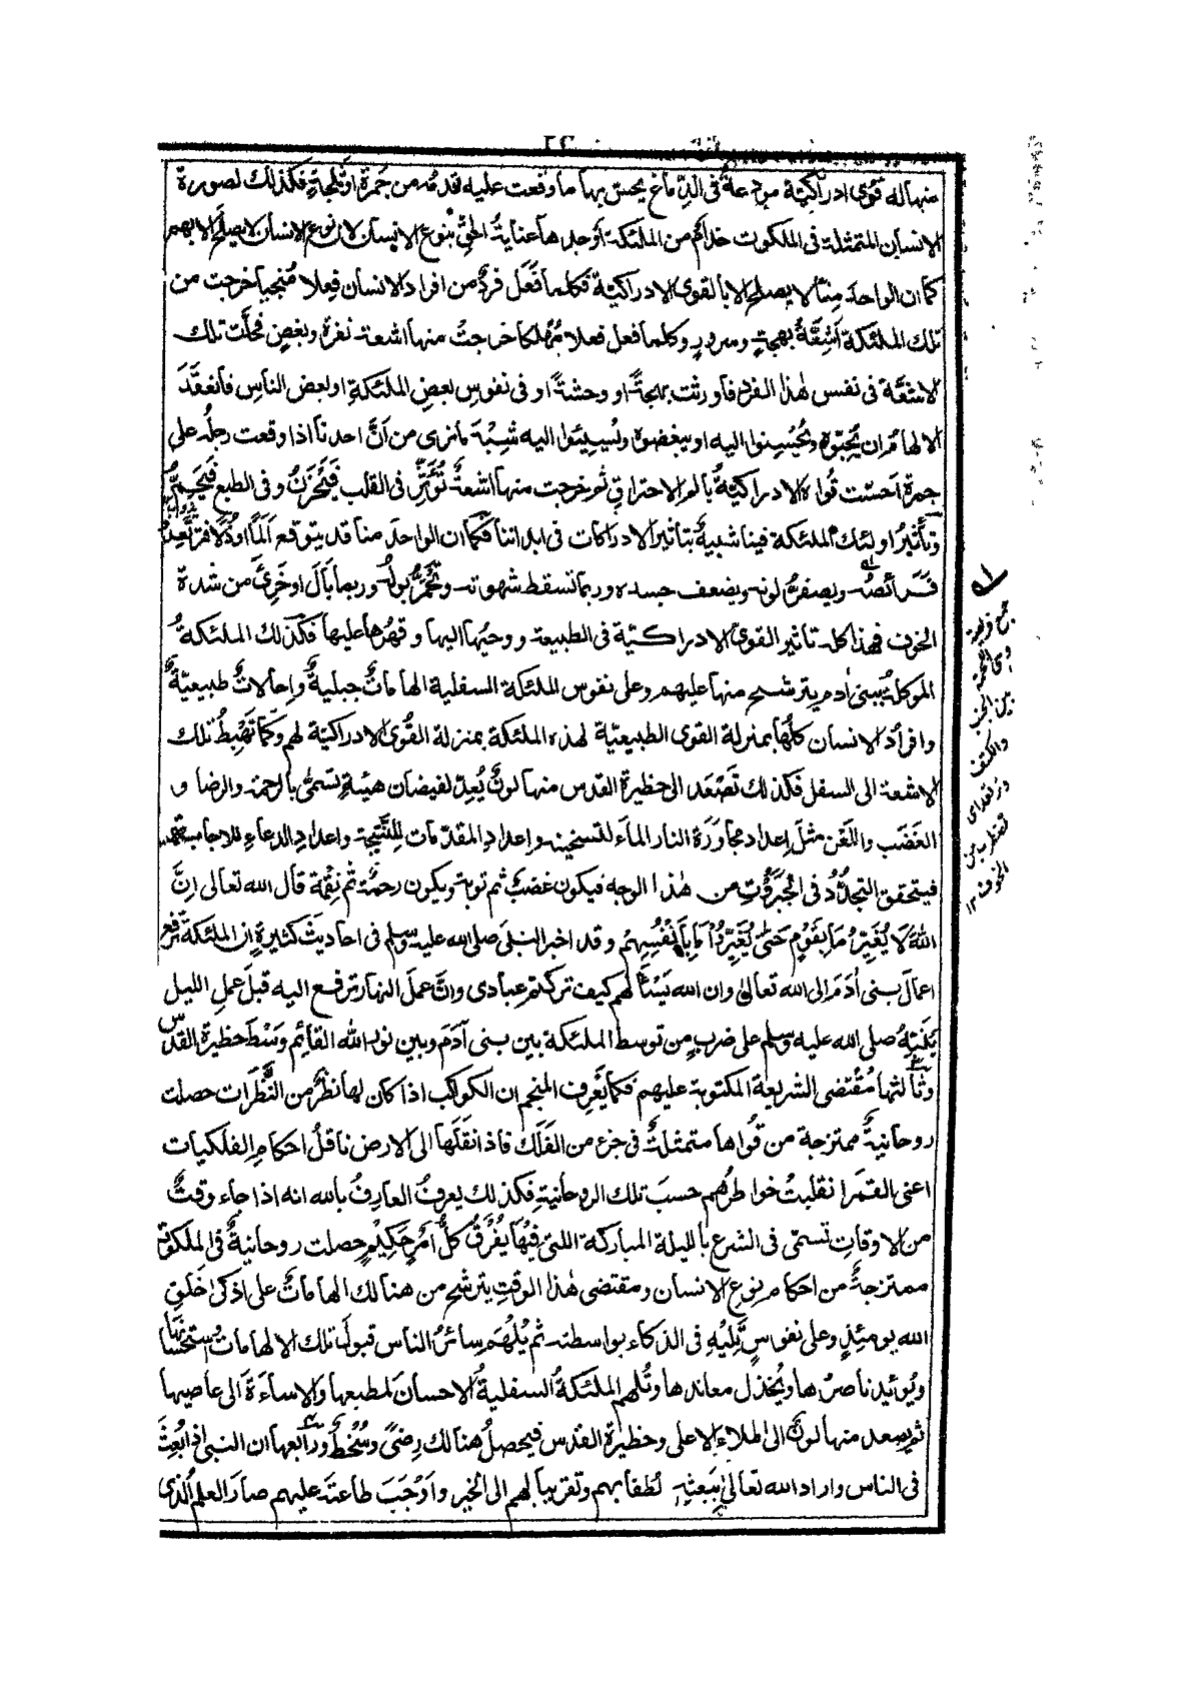 منها له قوى ادراكية مودعة فى الدماغ يحس بها ما وقعت عليه قدمه من جمرة او ثلجة فكذلك لصورة
الانسان المتمثلة فى الملكوت خدام من الملئكة أوجدها عناية الحق بنوع الانسان لان نوع الانسان لا يصلح الا بهم
كما ان الواحد منا لا يصلح الا بالقوى الادراكية فكلما فعل فرد من افراد الانسان فعلا منجيا خرجت من
تلك الملئكة أشعة بهجة وسرور وكلما فعل فعلا مهلكا خرجت منها اشعة نفرة وبغض فحلت تلك
الاشعة فى نفس هذا الفرد فأورثت بهجة او وحشة او فى نفوس بعض الملئكة او بعض الناس فانعقد
الالهام ان يحبوه ويحسنوا اليه او يبغضوه ويسيئوا اليه شبه ما نرى من أن احدنا اذا وقعت رجله على
جمرة احست قواه الادراكية بألم الاحتراق ثم خرجت منها اشعة تؤثر فى القلب فيحزن وفى الطبع فيحم
وتأثير اولئك الملئكة فينا شبيه بتأثير الادراكات فى ابداننا فكما ان الواحد منا قد يتوقع ألما او ذلا فترتعد
فرائصه ويصفر لونه ويضعف جسده وربما تسقط شهوته ويحمر بوله وربما بال او خرئ من شدة
الخوف فهذا كله تاثير القوى الادراكية فى الطبيعة ووحيها اليها وقهرها عليها فكذلك الملئكة
الموكلة ببنى أدم يترشح منها عليهم وعلى نفوس الملئكة السفلية الهامات جبلية وإحالات طبيعية
وافراد الانسان كلها بمنزلة القوى الطبيعية لهذه الملئكة بمنزلة القوى الادراكية لهم وكما تهبط تلك
الاشعة الى السفل فكذلك تصعد الى حظيرة القدس منها لون يعد لفيضان هيئة تسمى بالرحمة والرضا و
الغضب واللعن مثل إعداد مجاورة النار الماء لتسخينه وإعداد المقدمات للنتيجة وإعداد الدعاء للاجابة
فيتحقق التجدد فى الجبروت من هذا الوجه فيكون غضب ثم توبة ويكون رحمة ثم نقمة قال الله تعالى إن
الله لا يغير ما بقوم حتى يغيروا ما بأنفسهم وقد اخبر النبى صلى الله عليه وسلم فى احاديث كثيرة ان الملئكة ترفع
اعمال بنى أدم الى الله تعالى وان الله يسألهم كيف تركتم عبادى وان عمل النهار ترفع اليه قبل عمل الليل
ينبه صلى الله عليه وسلم على ضرب من توسط الملئكة بين بنى أدم وبين نور الله القائم وسط حظيرة القدس
وثالثها مقتضى الشريعة المكتوبة عليهم فكما يعرف المنجم ان الكواكب اذا كان لها نظر من النظرات حصلت
روحانية ممتزجة من قواها متمثلة فى جزء من الفلك فاذا نقلها الى الارض ناقل احكام الفلكيات
اعنى القمر انقلبت خواطرهم حسب تلك الروحانية فكذلك يعرف العارف بالله انه اذا جاء وقت
من الاوقات تسمى فى الشرع بالليلة المباركة اللتى فيها يفرق كل أمر حكيم حصلت روحانية فى الملكوت
ممتزجة من احكام نوع الانسان ومقتضى هذا الوقت يترشح من هنالك الهامات على اذكى خلق
الله يومئذ وعلى نفوس تليه فى الذكاء بواسطته ثم يلهم سائر الناس قبول تلك الالهامات واستحسانها
ويؤيد ناصرها ويخذل معاندها وتلهم الملئكة السفلية الاحسان لمطيعها والاساءة الى عاصيها
ثم يصعد منها لون الى الملاء الاعلى وحظيرة القدس فيحصل هنالك رضى وسخط ورابعها ان النبى اذا بعث
فى الناس واراد الله تعالى ببعثته لطفا بهم وتقريبا لهم الى الخير وأوجب طاعته عليهم صار العلم الذى
جمع فريصة
وهى اللحمة
بين الجنب
والكتف
تضطرب من
الخوف ١٢